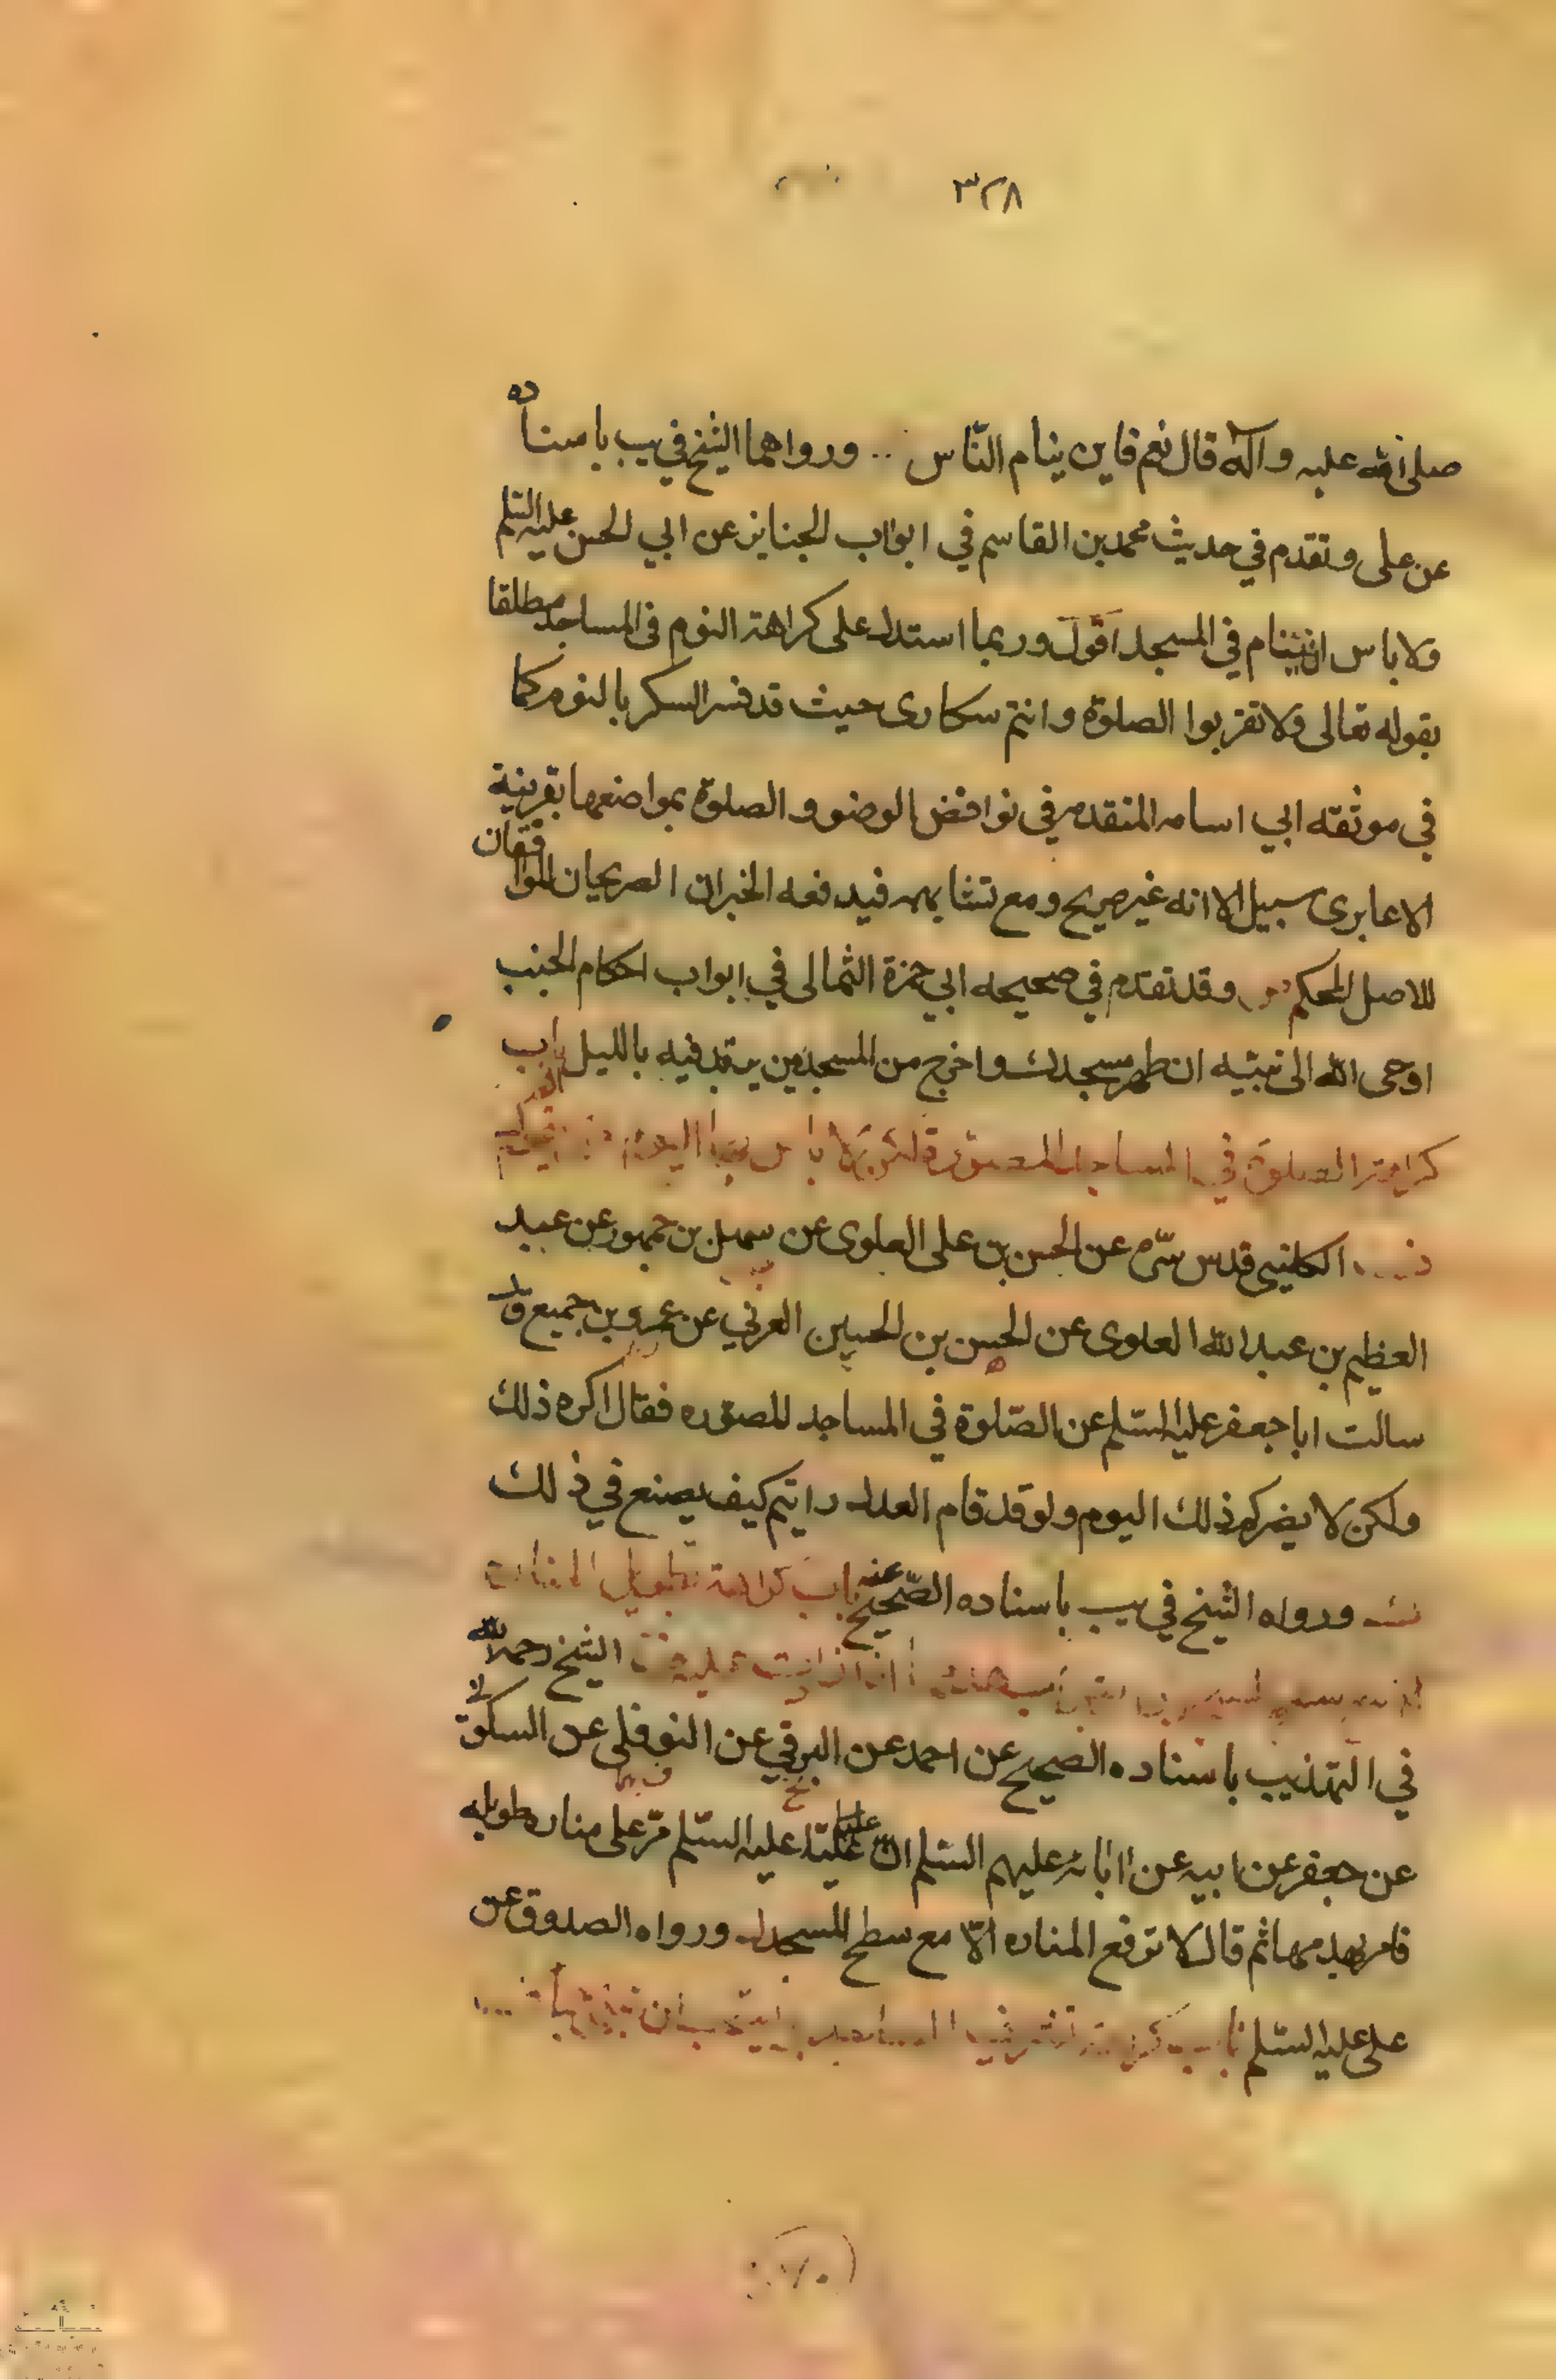 ٣٢٨
صلى الله عليه وآله قال نعم فاين ينام النّاس ورواهما الشيخ في يب باسناده
عن على وتقدم في حديث محمد بن القاسم في ابواب الجنايز عن ابي الحسن عليه السّلم
ولا باس ان ينام في المسجد اقول وربما استدل على كراهة النوم في المساجد مطلقا
بقوله تعالى ولا تقربوا الصلوة وانتم سكارى حيث قد فسر السكر بالنوم كما
في موثقه ابي اسامه المتقدم في نواقض الوضو والصلوة بمواضعها بقرينة
الا عابرى سبيل الا انه غير صريح ومع تشابهه فيدفعه الخبران الصريحان الموافقان
للاصل المحكم وقد تقدم في صحيحه ابي حمزة الثمالى في ابواب احكام الجنب
اوحى الله الى نبيّه ان طهر مسجدك واخرج من المسجد من يرقد فيه بالليل باب
كراهة الصلوة في المساجد المصوّرة ولا باس اليوم
الكلينى قدس سّره عن الحسن بن على العلوى عن سهل بن جمهور عن عبد
العظيم بن عبد الله العلوى عن الحسن بن الحسين العرني عن عمرو بن جميع قال
سالت ابا جعفر عليه السّلم عن الصّلوة في المساجد المصوّره فقال اكره ذلك
ولكن لا يضركم ذلك اليوم ولو قد قام العدل رايتم كيف يصنع في ذلك
ورواه الشيخ في يب باسناده الصّحيح عنه باب كراهة تطويل المنارة
الشيخ رحمه الله
في التهذيب باسناده الصحيح عن احمد عن البرقي عن النوفلى عن السكوني
عن جعفر عن ابيه عن ابائه عليهم السّلم ان عليّا عليه السّلم مرّ على مناره طويله
فامر بهدمها ثم قال لا ترفع المناره الّا مع سطح المسجد ورواه الصدوق عن
على عليه السّلم باب كراهة تشريف المساجد